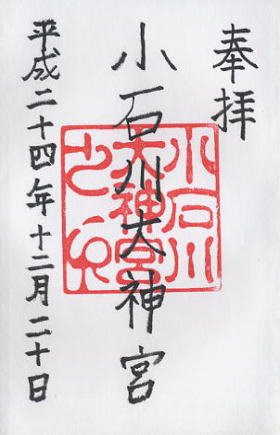 奉拝
小石川大神宮
平成二十四年十二月二十日
小石川
大神宮
之印